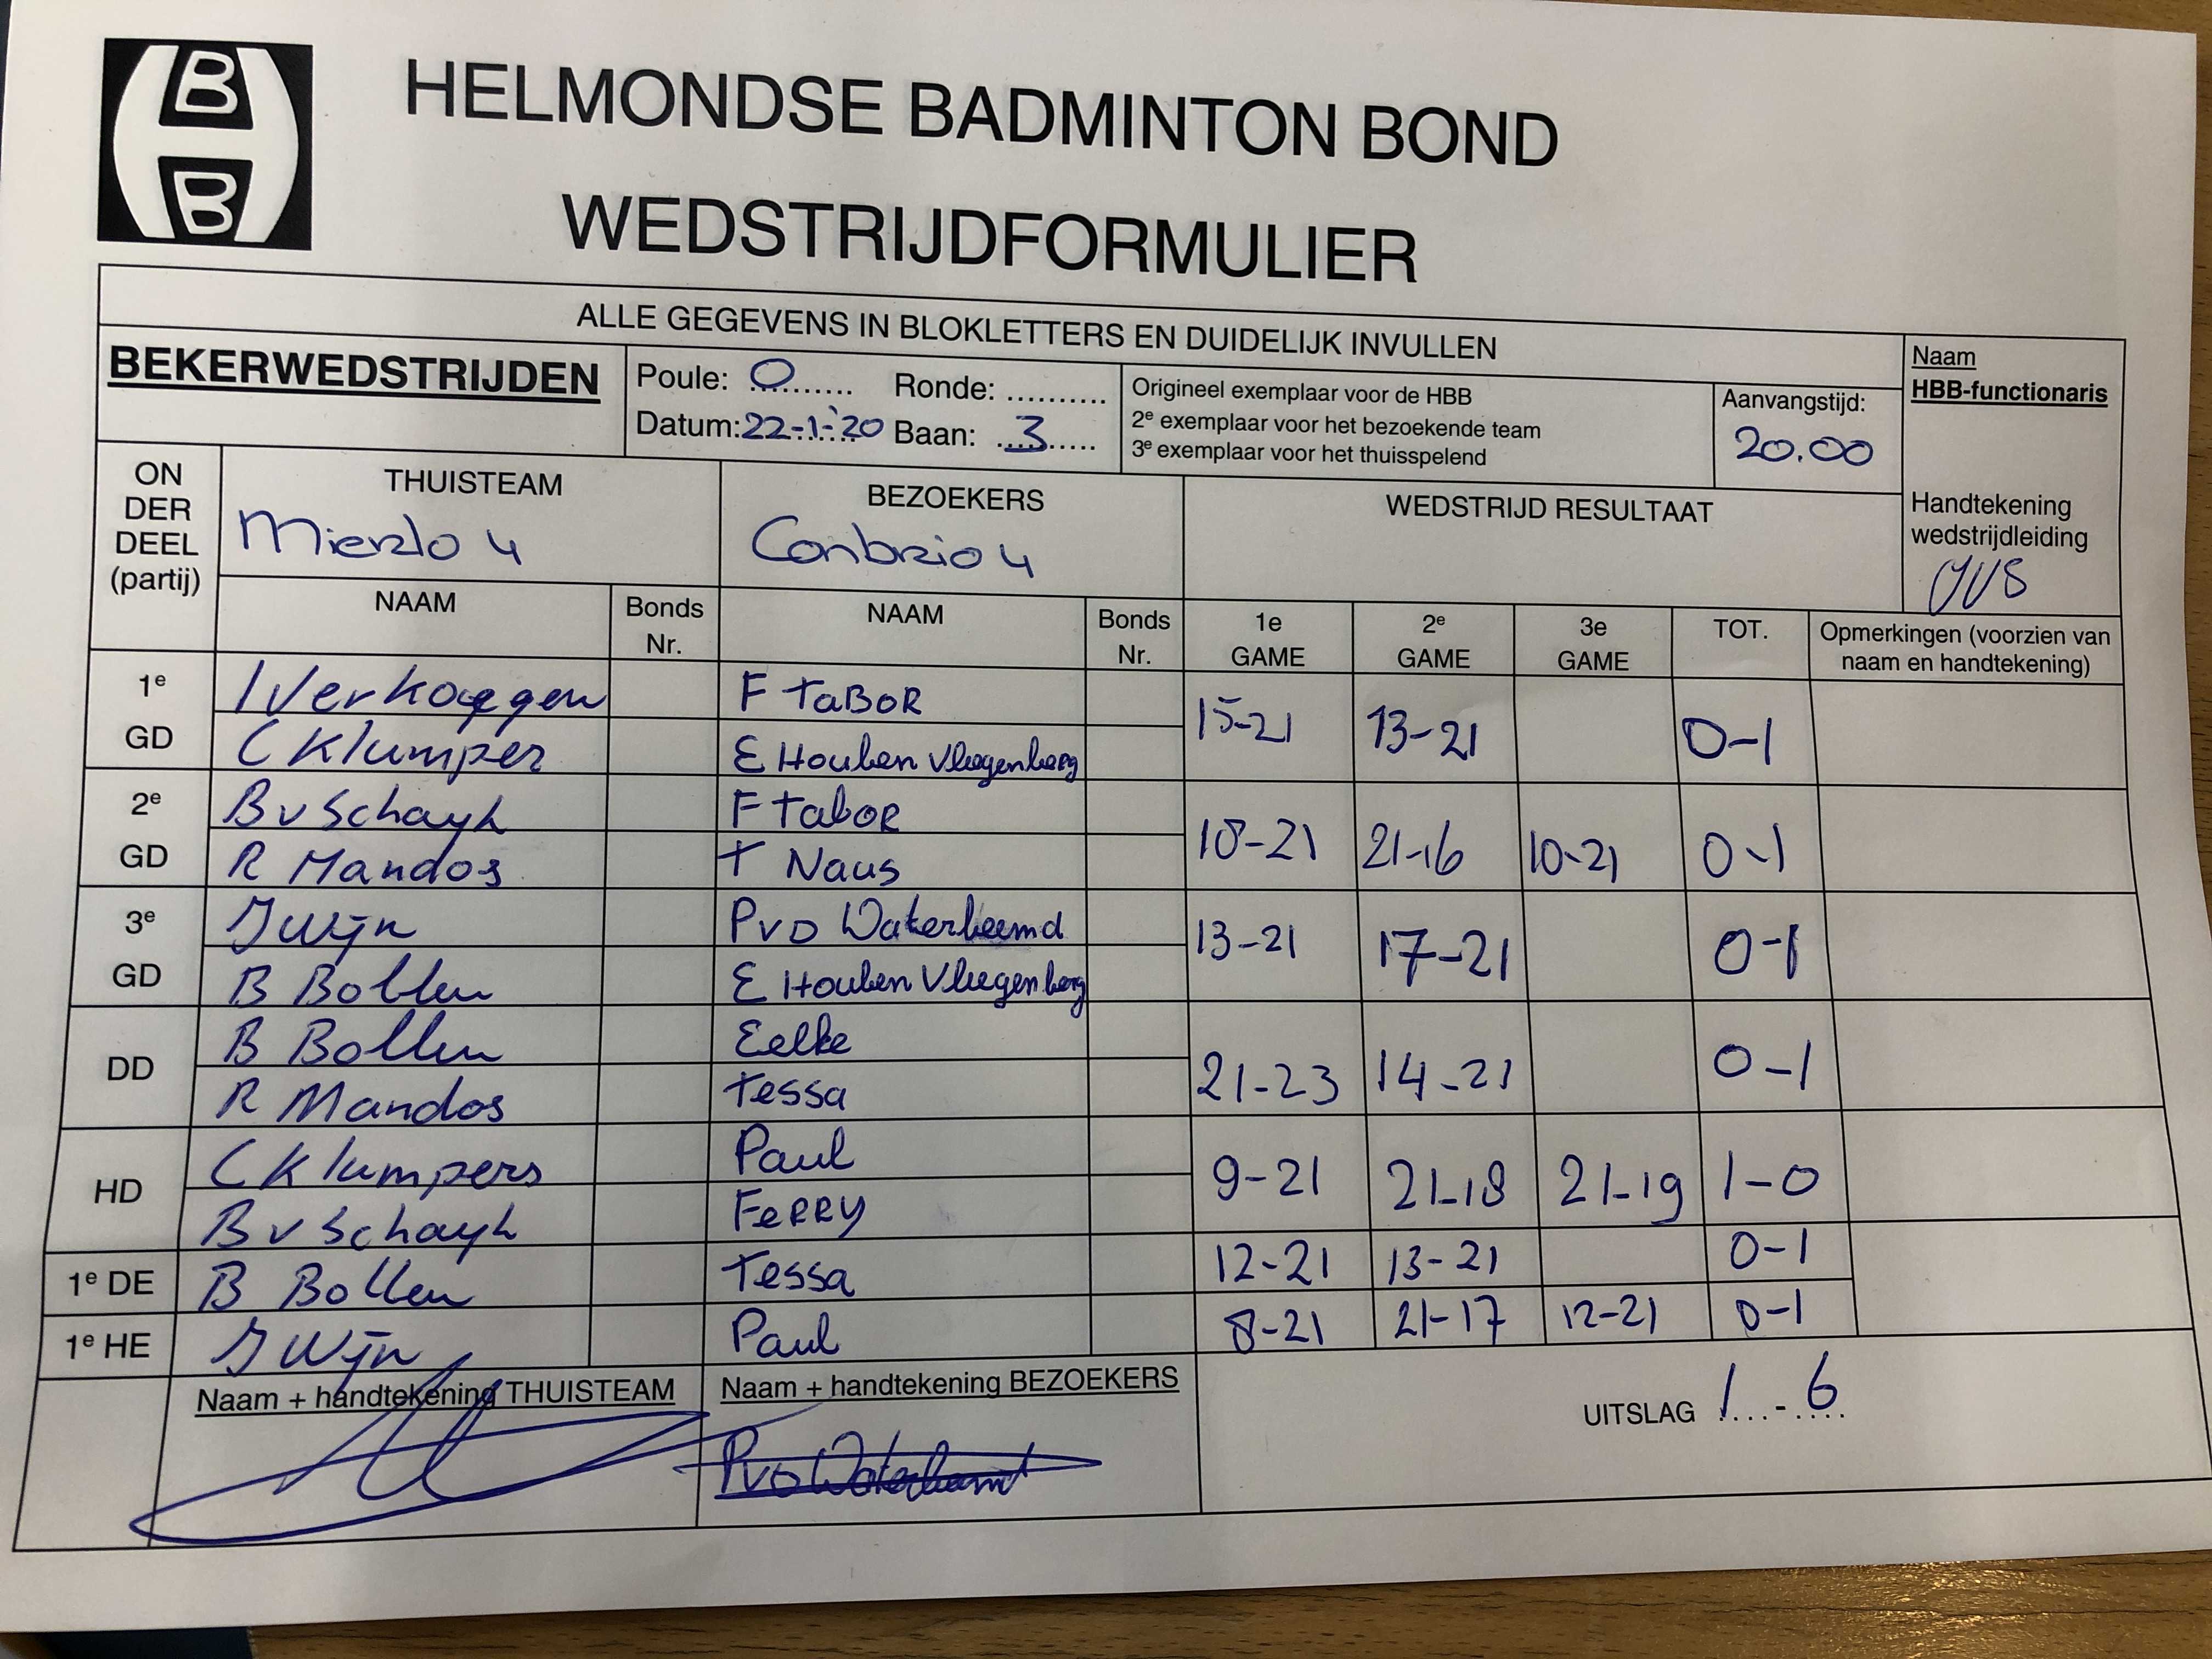 B
B
HELMONDSE BADMINTON BOND
WEDSTRIJDFORMULIER
ALLE GEGEVENS IN BLOKLETTERS EN DUIDELIJK INVULLEN
BEKERWEDSTRIJDEN
Poule: O......... Ronde: ..........
Datum: 22-1-'20 Baan: ...3.....
Origineel exemplaar voor de HBB
2e exemplaar voor het bezoekende team
3e exemplaar voor het thuisspelend
Aanvangstijd:
20.00
Naam
HBB-functionaris
Handtekening
wedstrijdleiding
ON
DER
DEEL
(partij)
THUISTEAM
Mierlo 4
BEZOEKERS
Conbrio 4
WEDSTRIJD RESULTAAT
NAAM
Bonds
Nr.
NAAM
Bonds
Nr.
1e
GAME
2e
GAME
3e
GAME
TOT.
Opmerkingen (voorzien van
naam en handtekening)
1e
GD
I Verkoeggen
C Klumper
F TABOR
E Houben Vliegenberg
15-21 13-21 0-1
2e
GD
B v Schayk
R Mandos
F Tabor
T Naus
18-21 21-16 10-21 0-1
3e
GD
J Wijn
B Bollen
PvD Waterbeemd
E Houben Vliegenberg
13-21 17-21 0-1
DD
B Bollen
R Mandos
Eelke
Tessa
21-23 14-21 0-1
HD
C Klumpers
B v Schayk
Paul
FeRRY
9-21 21-18 21-19 1-0
1e DE B Bollen Tessa 12-21 13-21 0-1
1e HE J Wijn Paul 8-21 21-17 12-21 0-1
Naam + handtekening THUISTEAM
Naam + handtekening BEZOEKERS
PvD Waterbeemd
UITSLAG 1 - 6